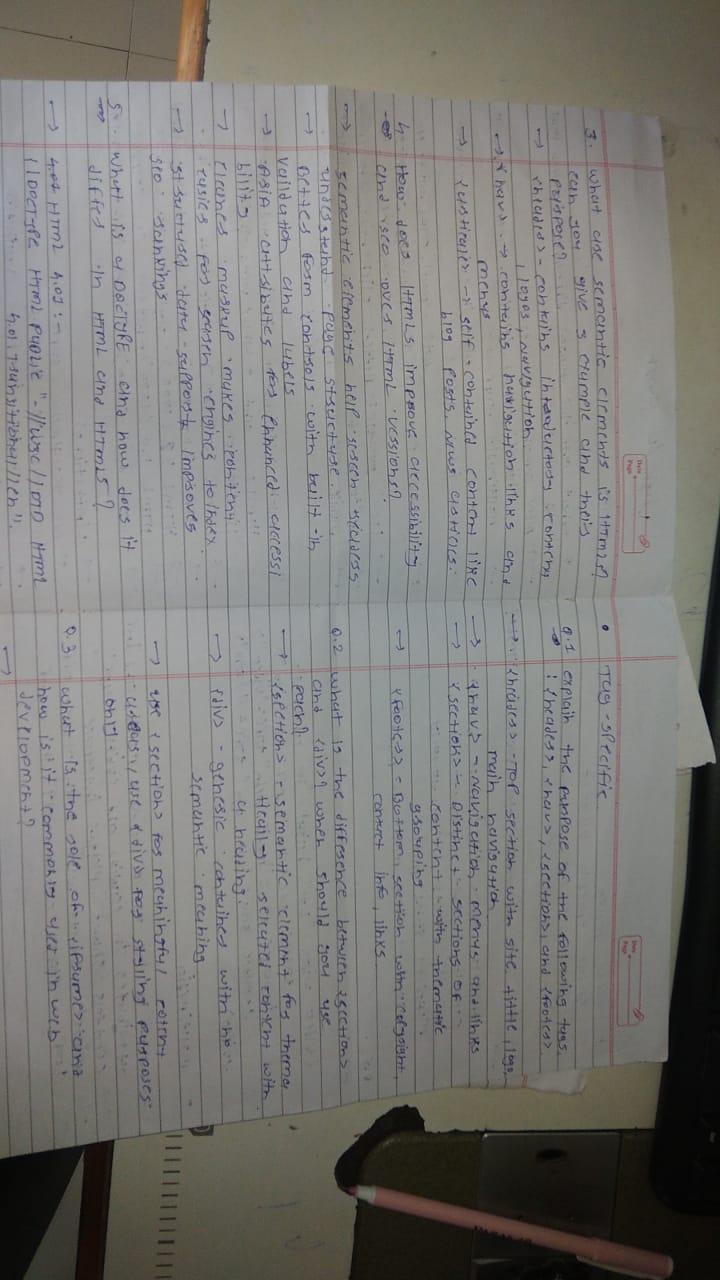 3. What are semantic elements is HTML5?
can you give 3 example and their
purpose?
→ <header> - contains introductory content
logos, navigation.
→ <nav> → contains navigation links and
menus
→ <article> → self-contained content like
blog posts, news articles.
4. How does HTML5 improve accessibility
and seo over HTML versions?
→ semantic elements help screen readers
understand page structure.
→ Better form controls with built-in
validation and labels
→ ARIA attributes for enhanced accessi
bility
→ cleaner markup makes content
easier for search engines to index.
→ structured data support improves
seo rankings
5. what is a DOCTYPE and how does it
differ in HTML and HTML5?
→ 4.01 HTML 4.01 :-
!DOCTYPE HTML PUBLIC "-//W3C//DTD HTML
4.01 Transitional//en".
Date
Page
• Tag-specific
Q.1 explain the purpose of the following tags
: <header>, <nav>, <section> and <footer>
→ <header> - TOP section with site tittle, logo,
main navigation
→ <nav> - Navigation menus and links
→ <section> - Distinct sections of
content with thematic
grouping
→ <footer> - Bottom section with copyright,
contact info, links
Q.2 what is the difference between <section>
and <div>? when should you use
each?
→ <section> - semantic element for thema
tically related content with
a heading.
→ <div> - generic container with no
semantic meaning
→ use <section> for meaningful content
areas, use <div> for styling purposes
only.
Q.3 what is the role of and
how is it commonly used in web
development?
→
Date
Page